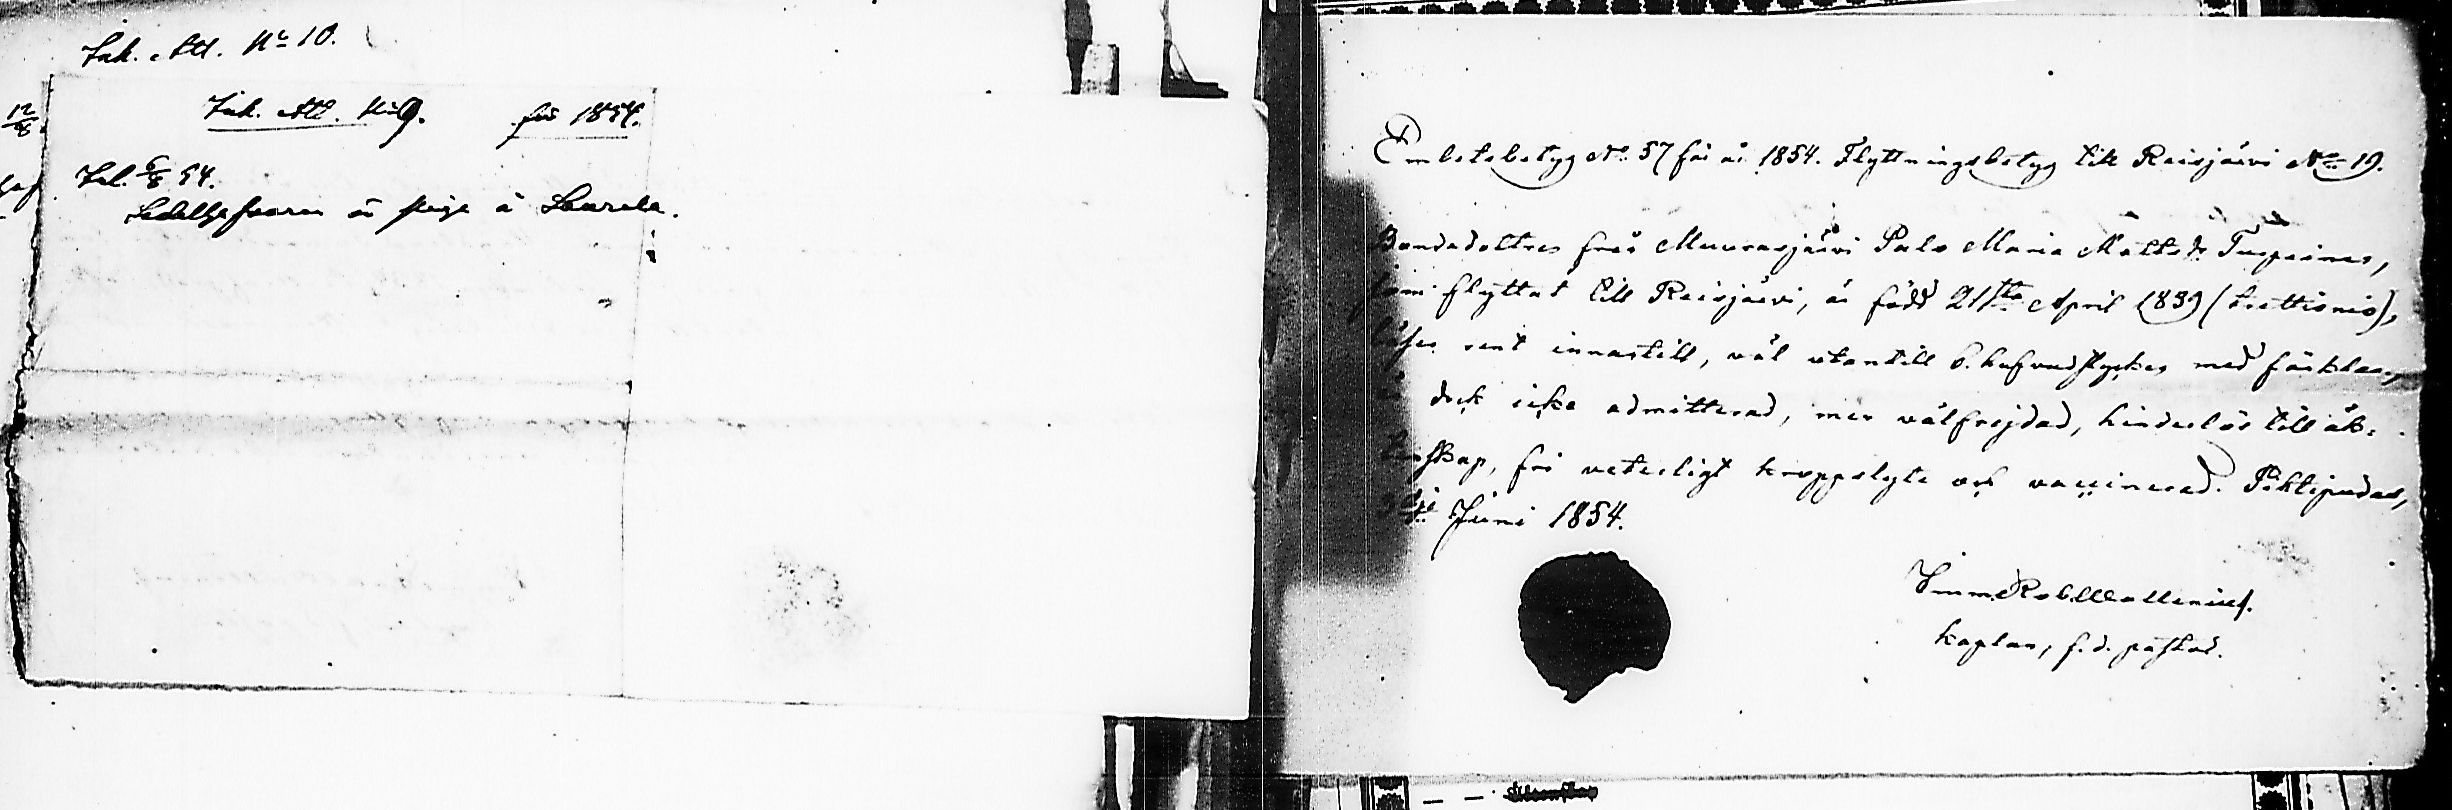 Ink. Att. No 10.
Ink. Att. No 9. för 1854.
12/8
Lel. 6/8 54.
Sedelhafvaren är piga å Saarela.
Embetsbetyg No. 57 för år 1854. Flyttningsbetyg till Reisjärvi No 19.
Bondedottren från Muurasjärvi Palo Maria Mattsdr Turpeinen,
som flyttat till Reisjärvi, är född 21sta April 1839 (trettionio),
läser rent innantill, väl utantill 6. hufvudstycken med förklar.,
är dock icke admitterad, men välfrejdad, hinderlös till äk-
tenskap, fri veterligt kroppslyte och vaccinerad. Pihtipudas,
Juni 1854.
Imm. Rob. Wallenius.
kaplan, f.d. pastor.